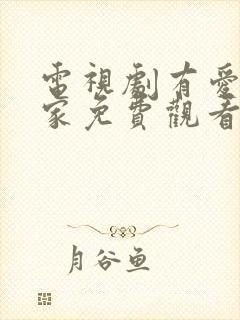 電視劇有愛
家免費觀看
月谷鱼